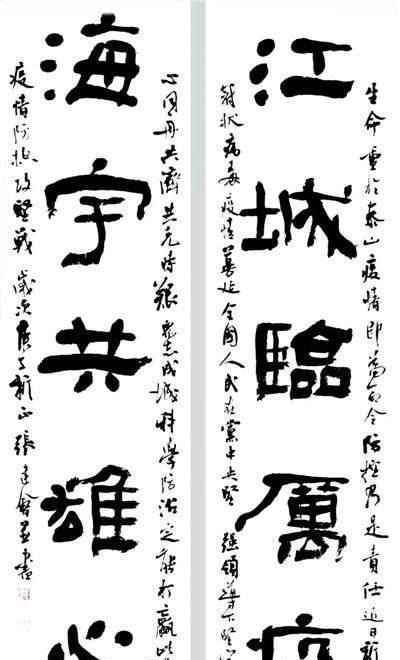 生命重於泰山疫情即為命令防控乃是責任近日新
江城臨厲疫
冠狀病毒疫情蔓延全國人民在黨中央堅強領導下堅
心同舟共濟共克時艱衆志成城科學防治定能打贏此
海宇共雄心
疫情防控攻堅戰 歲次庚子新正張建會並書